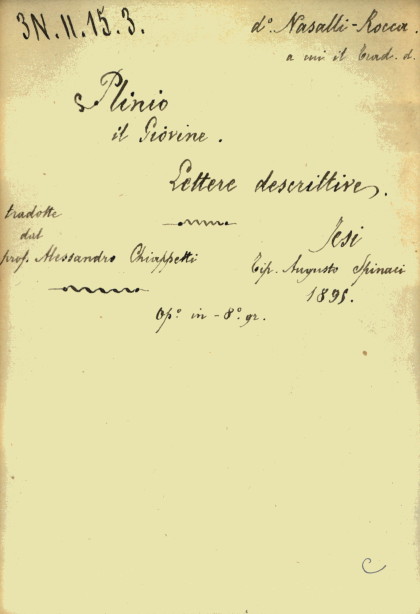 3N. II. 15. 3.
d.º Nasalli-Rocca.
a cui il Trad. d.
Plinio
il Giovine.
Lettere descrittive.
tradotte
dal
prof. Alessandro Chiappetti
Jesi
Tip. Augusto Spinaci
1895.
Op.º in-8.º gr.
C